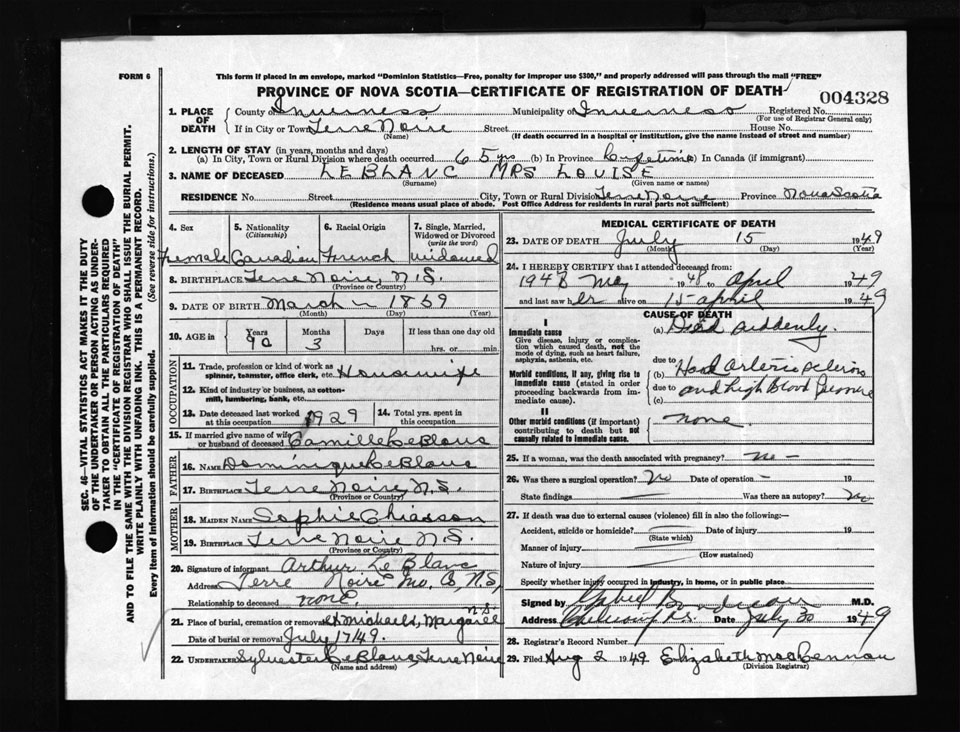 FORM 6
This form if placed in an envelope, marked "Dominion Statistics—Free, penalty for improper use $300," and properly addressed will pass through the mail "FREE"
PROVINCE OF NOVA SCOTIA—CERTIFICATE OF REGISTRATION OF DEATH
004328
SEC. 46—VITAL STATISTICS ACT MAKES IT THE DUTY
OF THE UNDERTAKER OR PERSON ACTING AS UNDER-
TAKER TO OBTAIN ALL THE PARTICULARS REQUIRED
IN THE "CERTIFICATE OF REGISTRATION OF DEATH"
AND TO FILE THE SAME WITH THE DIVISION REGISTRAR WHO SHALL ISSUE THE BURIAL PERMIT.
WRITE PLAINLY WITH UNFADING INK. THIS IS A PERMANENT RECORD.
Every item of information should be carefully supplied. (See reverse side for instructions.)
1. PLACE OF DEATH
County of Inverness Municipality of Inverness Registered No.
(For use of Registrar General only)
If in City or Town Terre Noire Street House No.
(Name) (If death occurred in a hospital or institution, give the name instead of street and number)
2. LENGTH OF STAY (in years, months and days)
(a) In City, Town or Rural Division where death occurred 65 yrs (b) In Province Lifetime (c) In Canada (if immigrant)
3. NAME OF DECEASED LEBLANC MRS LOUISE
(Surname) (Given name or names)
RESIDENCE No. Street City, Town or Rural Division Terre Noire Province Nova Scotia
(Residence means usual place of abode. Post Office Address for residents in rural parts not sufficient)
4. Sex
Female
5. Nationality
(Citizenship)
Canadian
6. Racial Origin
French
7. Single, Married, Widowed or Divorced
(write the word)
widowed
8. BIRTHPLACE Terre Noire, N.S.
(Province or Country)
9. DATE OF BIRTH March – 1859
(Month) (Day) (Year)
10. AGE in Years Months Days If less than one day old
90 3 hrs. or min.
OCCUPATION
11. Trade, profession or kind of work as Housewife
spinner, teamster, office clerk, etc.
12. Kind of industry or business, as cotton-
mill, lumbering, bank, etc.
13. Date deceased last worked at this occupation 1929
14. Total yrs. spent in this occupation
15. If married give name of wife or husband of deceased Camille LeBlanc
FATHER
16. NAME Dominique LeBlanc
17. BIRTHPLACE Terre Noire N.S.
(Province or Country)
MOTHER
18. MAIDEN NAME Sophie Chiasson
19. BIRTHPLACE Terre Noire N.S.
(Province or Country)
20. Signature of informant Arthur Le Blanc
Address Terre Noire Inv. Co, N.S,
Relationship to deceased none.
21. Place of burial, cremation or removal St Michaels, Margaree N.S.
Date of burial or removal July 17/49.
22. Undertaker Sylvester LeBlanc, Terre Noire
(Name and address)
MEDICAL CERTIFICATE OF DEATH
23. DATE OF DEATH July 15 1949
(Month) (Day) (Year)
24. I HEREBY CERTIFY that I attended deceased from:
1948 May 1948 to April 1949
and last saw her alive on 15 april 1949
CAUSE OF DEATH
I
Immediate cause (a) Died suddenly.
Give disease, injury or complica-
tion which caused death, not the
mode of dying, such as heart failure,
asphyxia, asthenia, etc.
due to
Morbid conditions, if any, giving rise to (b)
immediate cause (stated in order due to and high Blood Pressure
proceeding backwards from im- (c)
mediate cause).
II
Other morbid conditions (if important) none.
contributing to death but not
causally related to immediate cause.
25. If a woman, was the death associated with pregnancy? no –
26. Was there a surgical operation? No Date of operation –
State findings Was there an autopsy? No
27. If death was due to external causes (violence) fill in also the following:—
Accident, suicide or homicide? Date of injury 19
(State which)
Manner of injury
(How sustained)
Nature of injury
Specify whether injury occurred in industry, in home, or in public place
Signed by Gabriel Boudreau M.D.
Address Cheticamp N.S. Date July 30 1949
28. Registrar's Record Number
29. Filed Aug 2 1949 Elizabeth MacLennan
(Division Registrar)